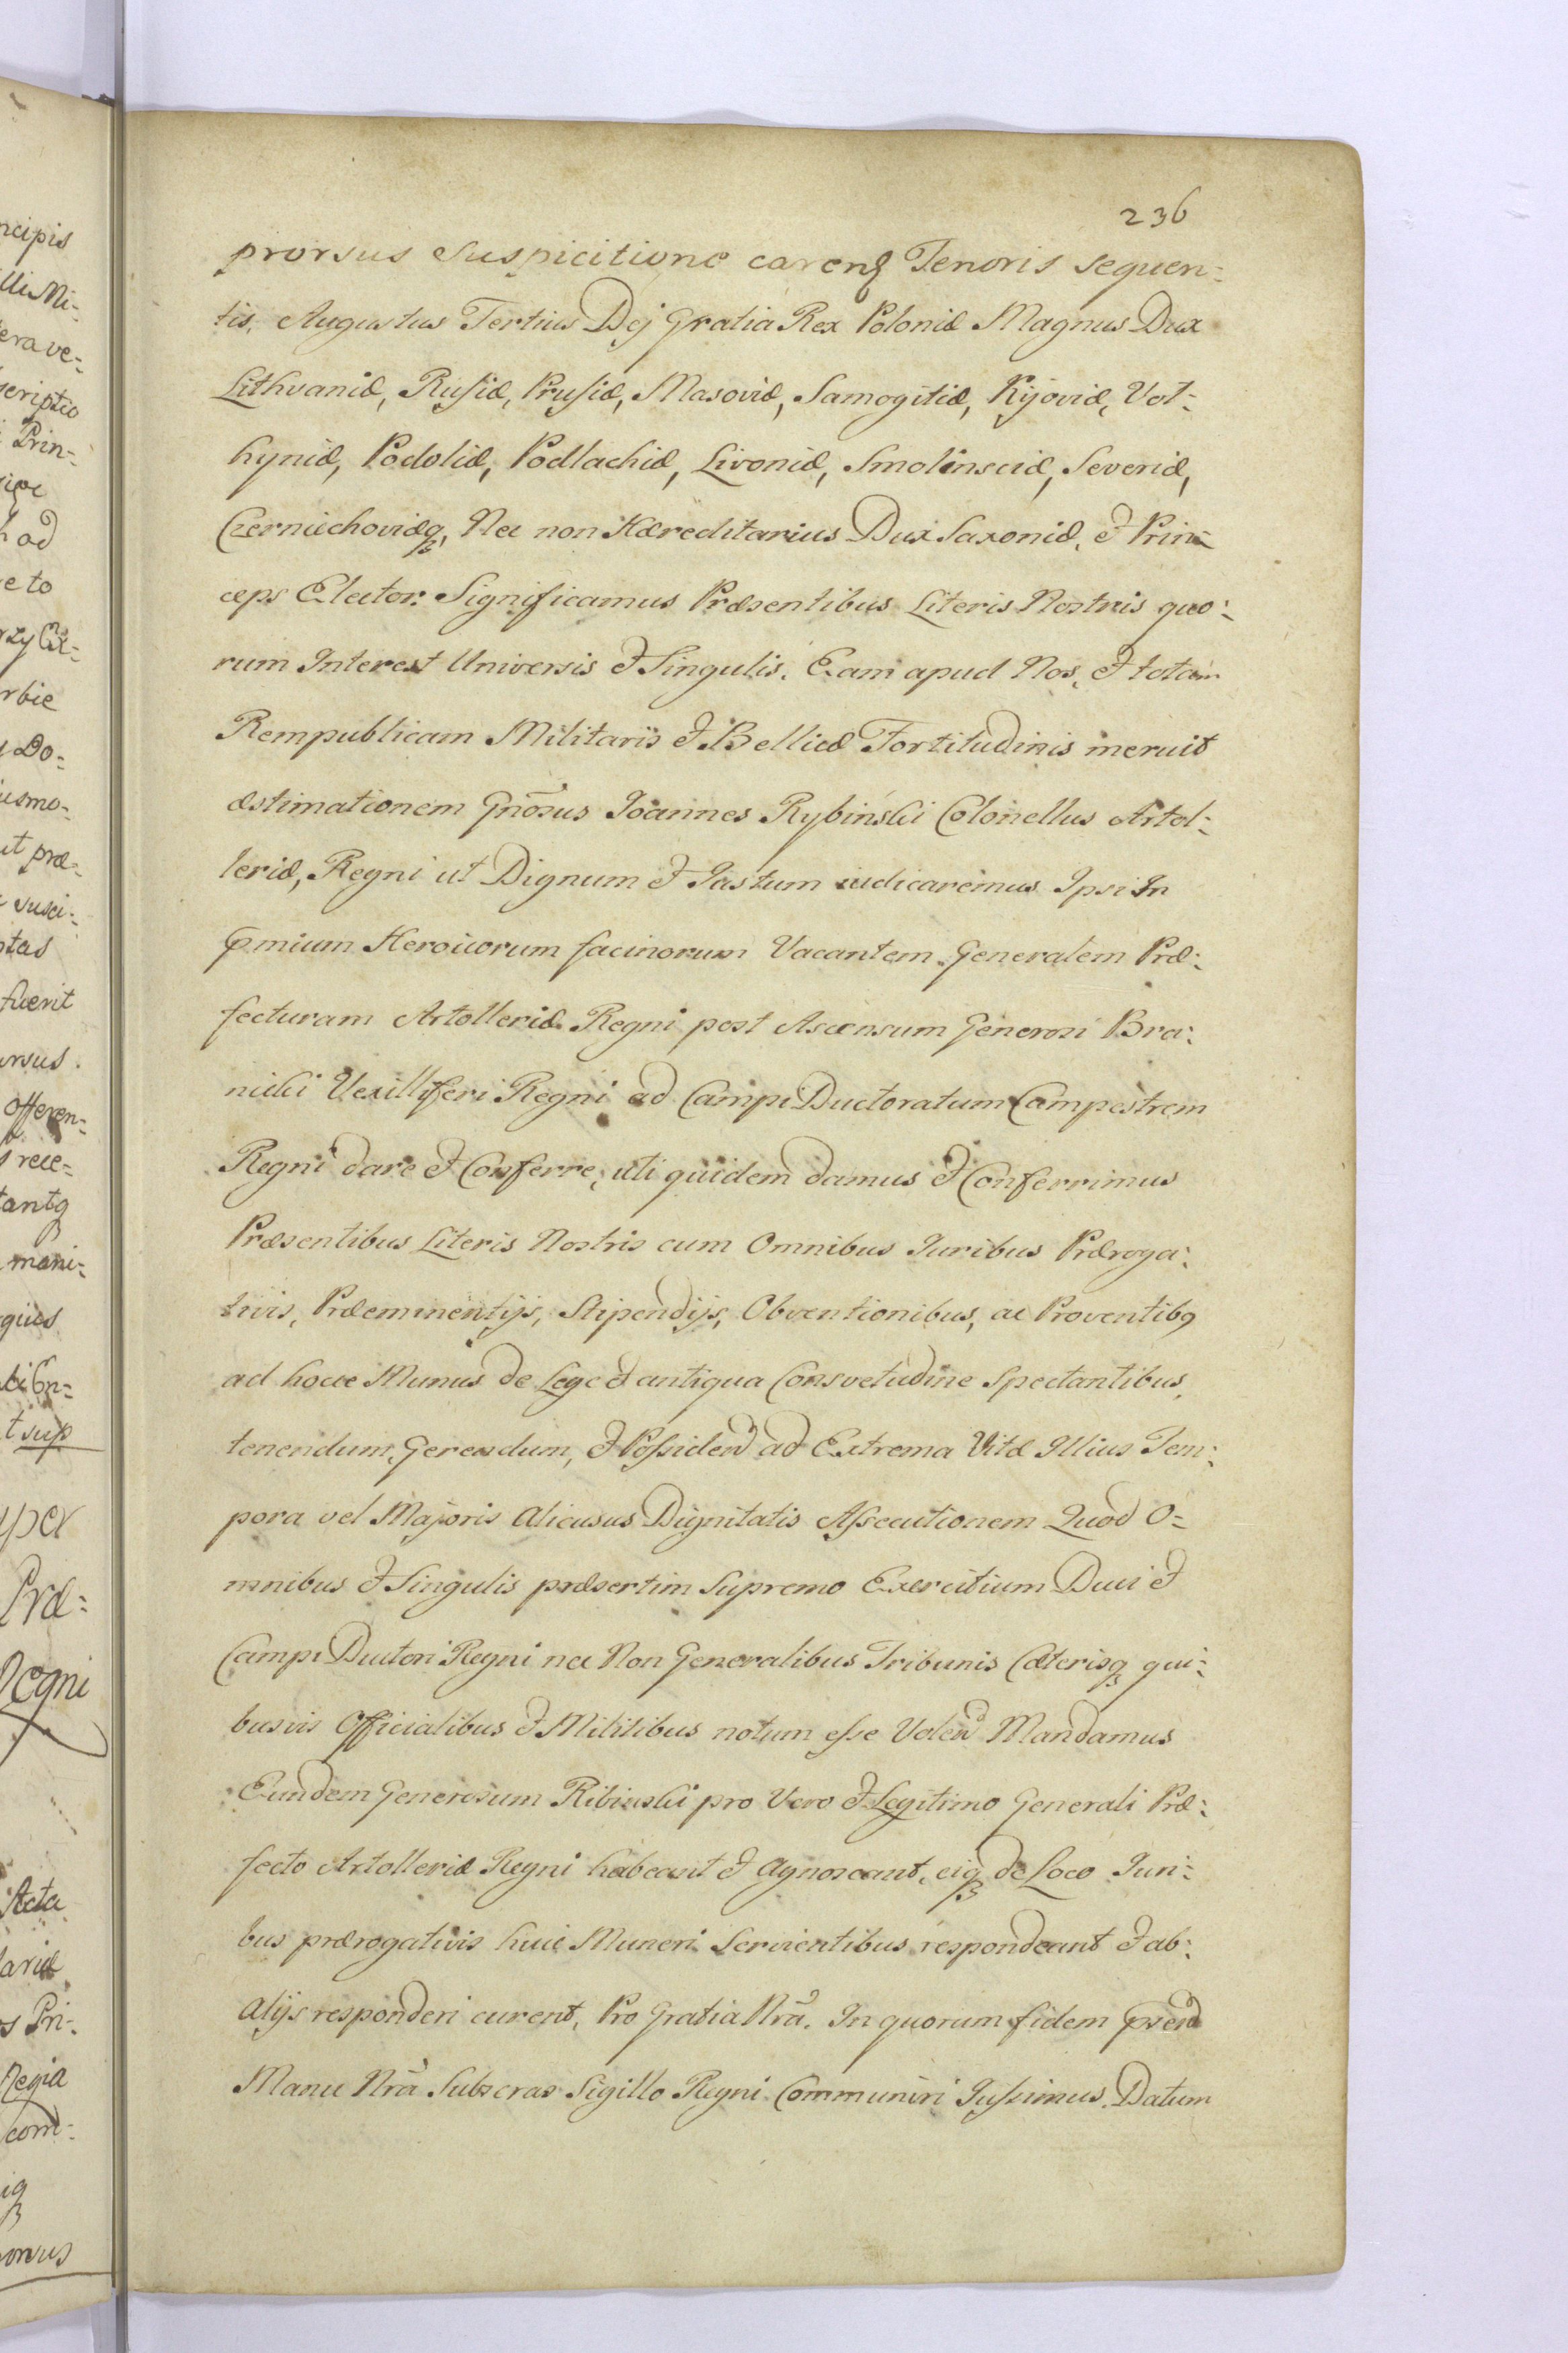 236
prorsus Suspicitione carenq Tenoris sequen=
tis. Augustus Tertius Dej Gratia Rex Poloniæ Magnus Dux
Lithvaniæ, Rusiæ, Prusiæ, Masoviæ, Samogitiæ, Kijoviæ, Vol=
hyniæ, Podoliæ, Podlachiæ, Livoniæ, Smolinsciæ, Severiæ,
Czerniechoviæq, Nec non Hæreditarius Dux Saxoniæ, et Prin=
ceps Elector. Significamus Præsentibus Literis Nostris quo=
rum Interest Universis et Singulis. Eam apud Nos, et totam
Rempublicam Militaris et Bellicæ Fortitudinis meruit
æstimationem Gnōsus Joannes Rybinski Colonellus Artol=
leriæ, Regni ut Dignum et Justum iudicaremus Ipsi In
Pmium Heroicorum facinorum Vacantem Generalem Præ=
fecturam Artolleriæ Regni post Ascensum Generosi Bra=
nicki Vexilliferi Regni ad Campi Ductoratum Campestrem
Regni dare et Conferre, uti quidem damus et Conferrimus
Præsentibus Literis Nostris cum Omnibus Juribus Præroga=
tivis, Præeminentijs, Stipendijs, Obventionibus, ac Proventibq
ad hocce Munus de Lege et antiqua Consvetudine Spectantibus,
tenendum, Gerendum, et Possidend ad Extrema Vitæ Illius Tem=
pora vel Majoris alicusus Dignitatis Assecutionem Quod O=
mnibus et Singulis præsertim Supremo Exercitium Duci et
Campi Ductori Regni nec Non Generalibus Tribunis Cæterisq qui=
busvis Officialibus et Militibus notum esse Volend Mandamus
Eundem Generosum Ribinski pro Vero et Legitimo Generali Præ=
fecto Artolleriæ Regni habeant et agnoscant, eiq de Loco Juri=
bus prærogativis huic Muneri Servientibus respondeant et ab=
alijs responderi curent, Pro Gratia Nrā. In quorum fidem Psend
Manu Nrā Subscras Sigillo Regni Communiri Jussimus. Datum